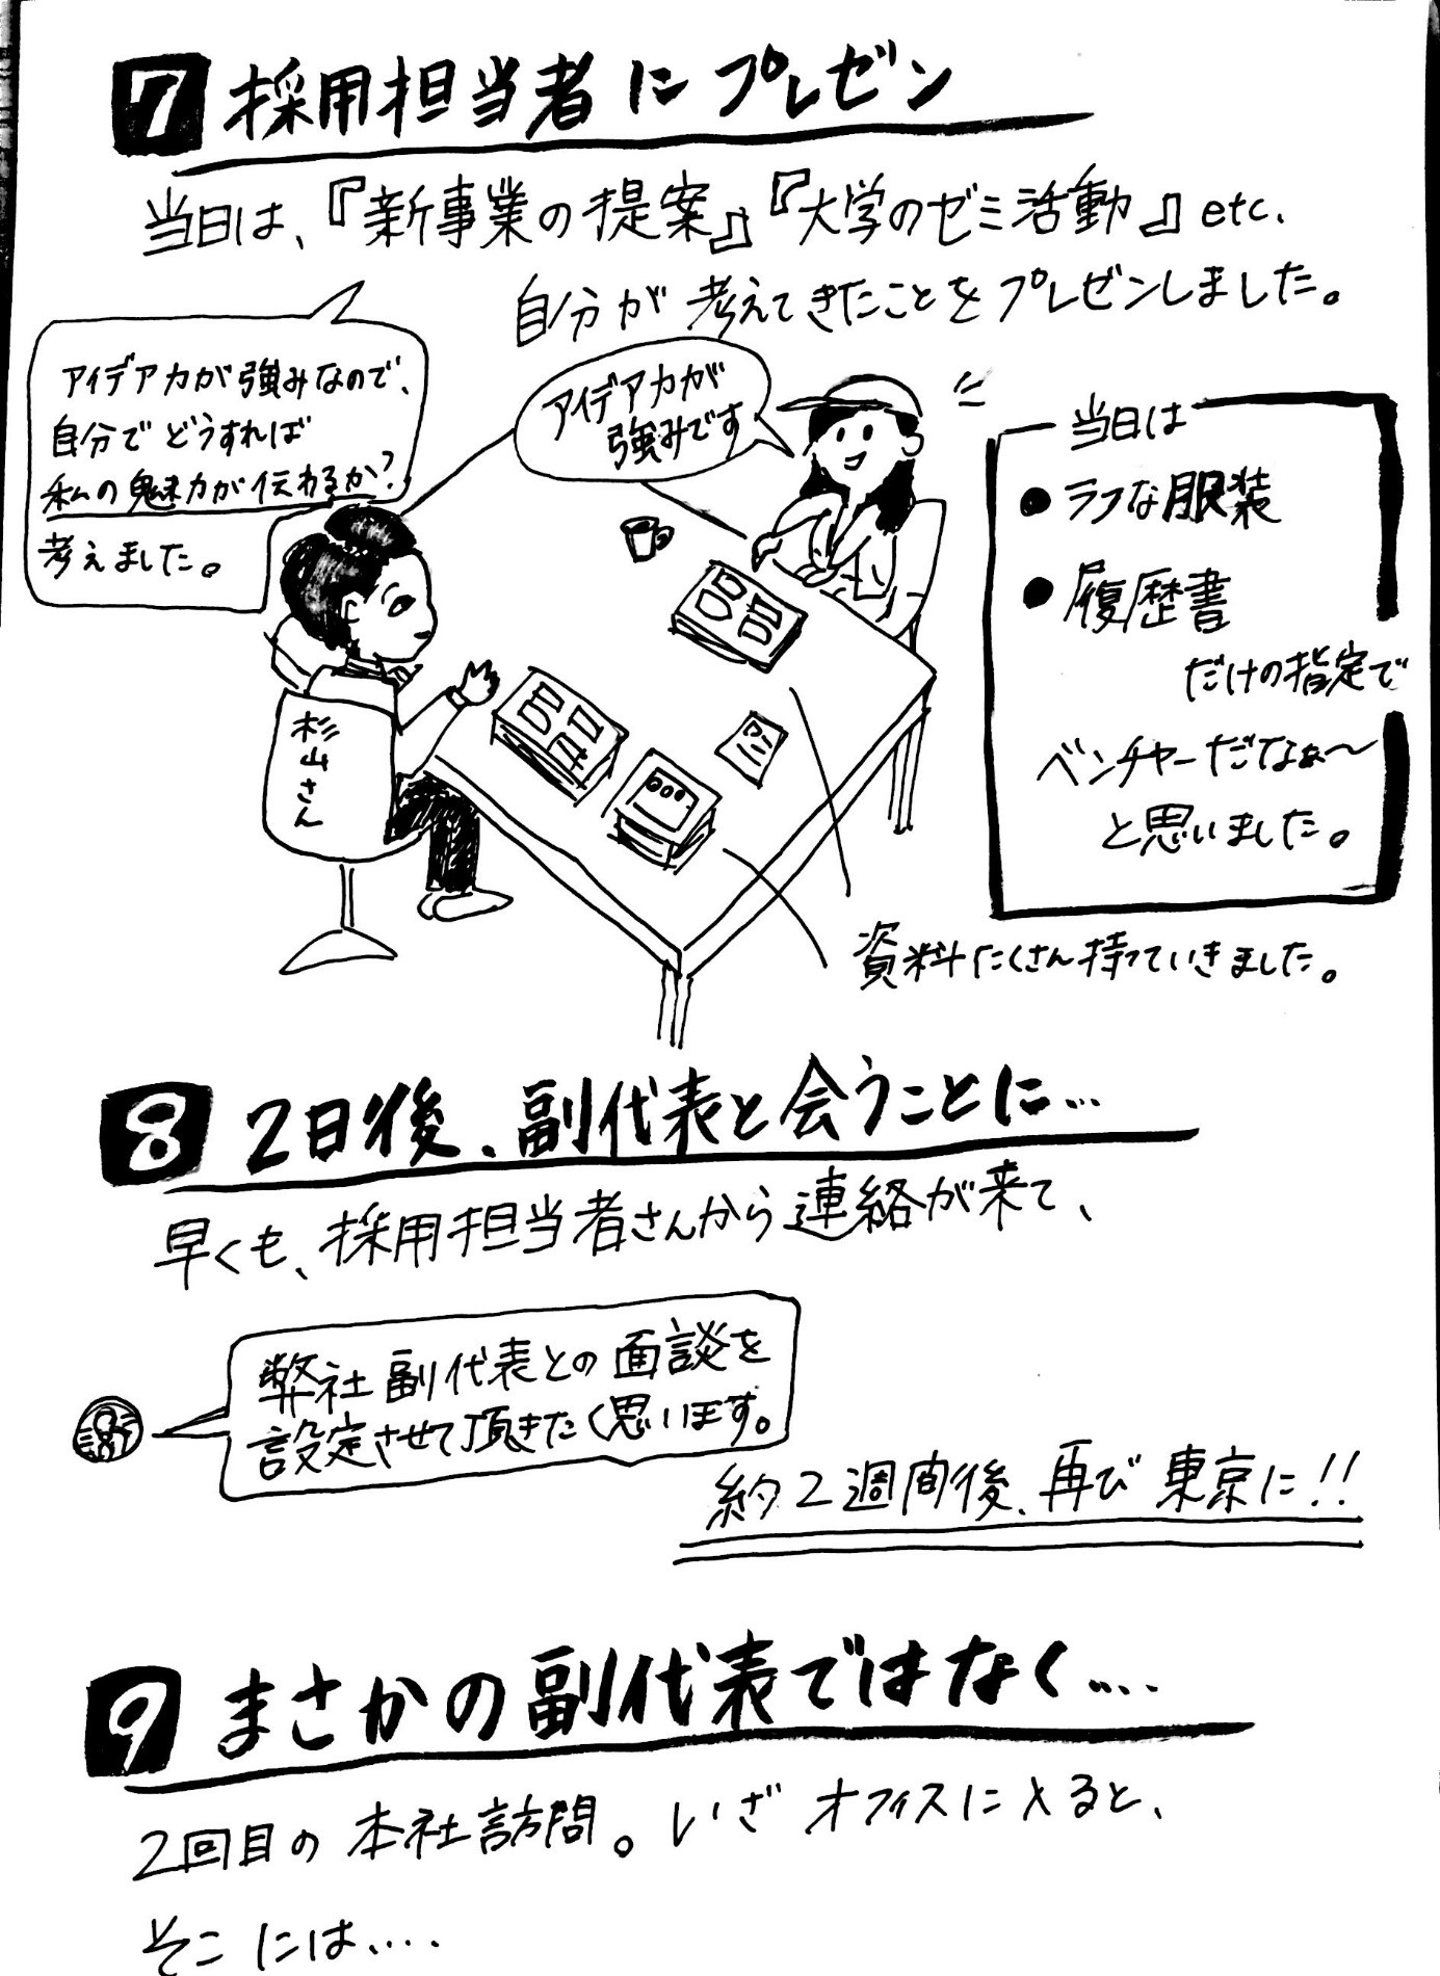 7 採用担当者にプレゼン
当日は、『新事業の提案』『大学のゼミ活動』etc.
自分が考えてきたことをプレゼンしました。
アイデア力が強みなので、
自分でどうすれば
私の魅力が伝わるか?
考えました。
アイデア力が
強みです
当日は
●ラフな服装
●履歴書
だけの指定で
ベンチャーだなぁ〜
と思いました。
杉山さん
資料たくさん持っていきました。
8 2日後、副代表と会うことに…
早くも、採用担当者さんから連絡が来て、
弊社副代表との面談を
設定させて頂きたく思います。
約2週間後、再び東京に!!
9 まさかの副代表ではなく....
2回目の本社訪問。いざオフィスに入ると、
そこには....